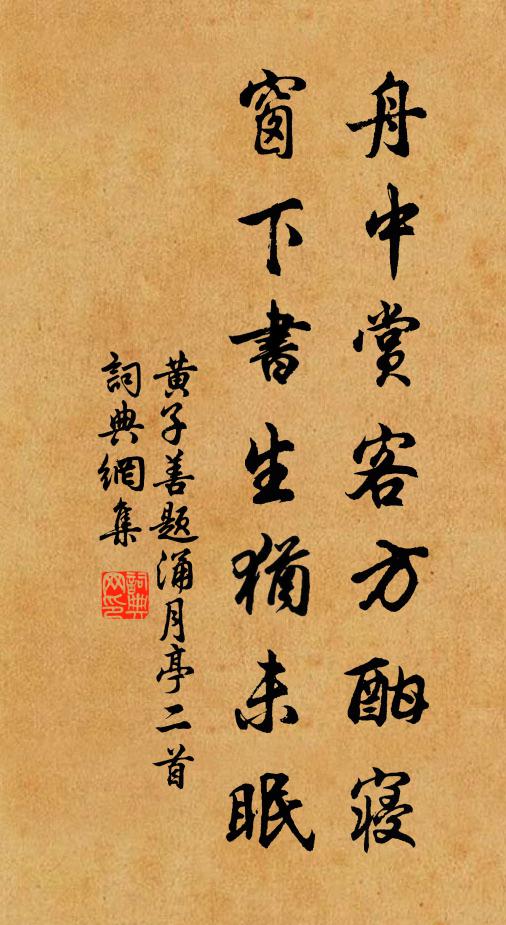 舟中賞客方酣寢
窗下書生猶未眠
黃子善題涌月亭二首
詞典網集
詞典网印